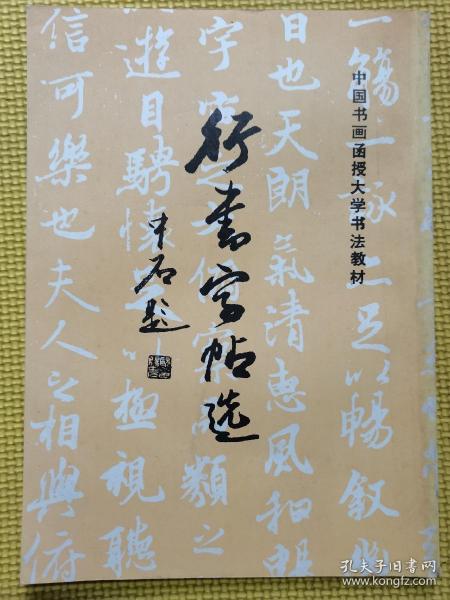 中国书画函授大学书法教材
行书字帖选
中石题
一觞一咏亦足以畅叙幽
日也天朗氣清惠風和暢
宇宙之大俯察品類之
遊目騁懷足以極視聽
信可樂也夫人之相與俯
孔夫子旧书网
www.kongfz.com